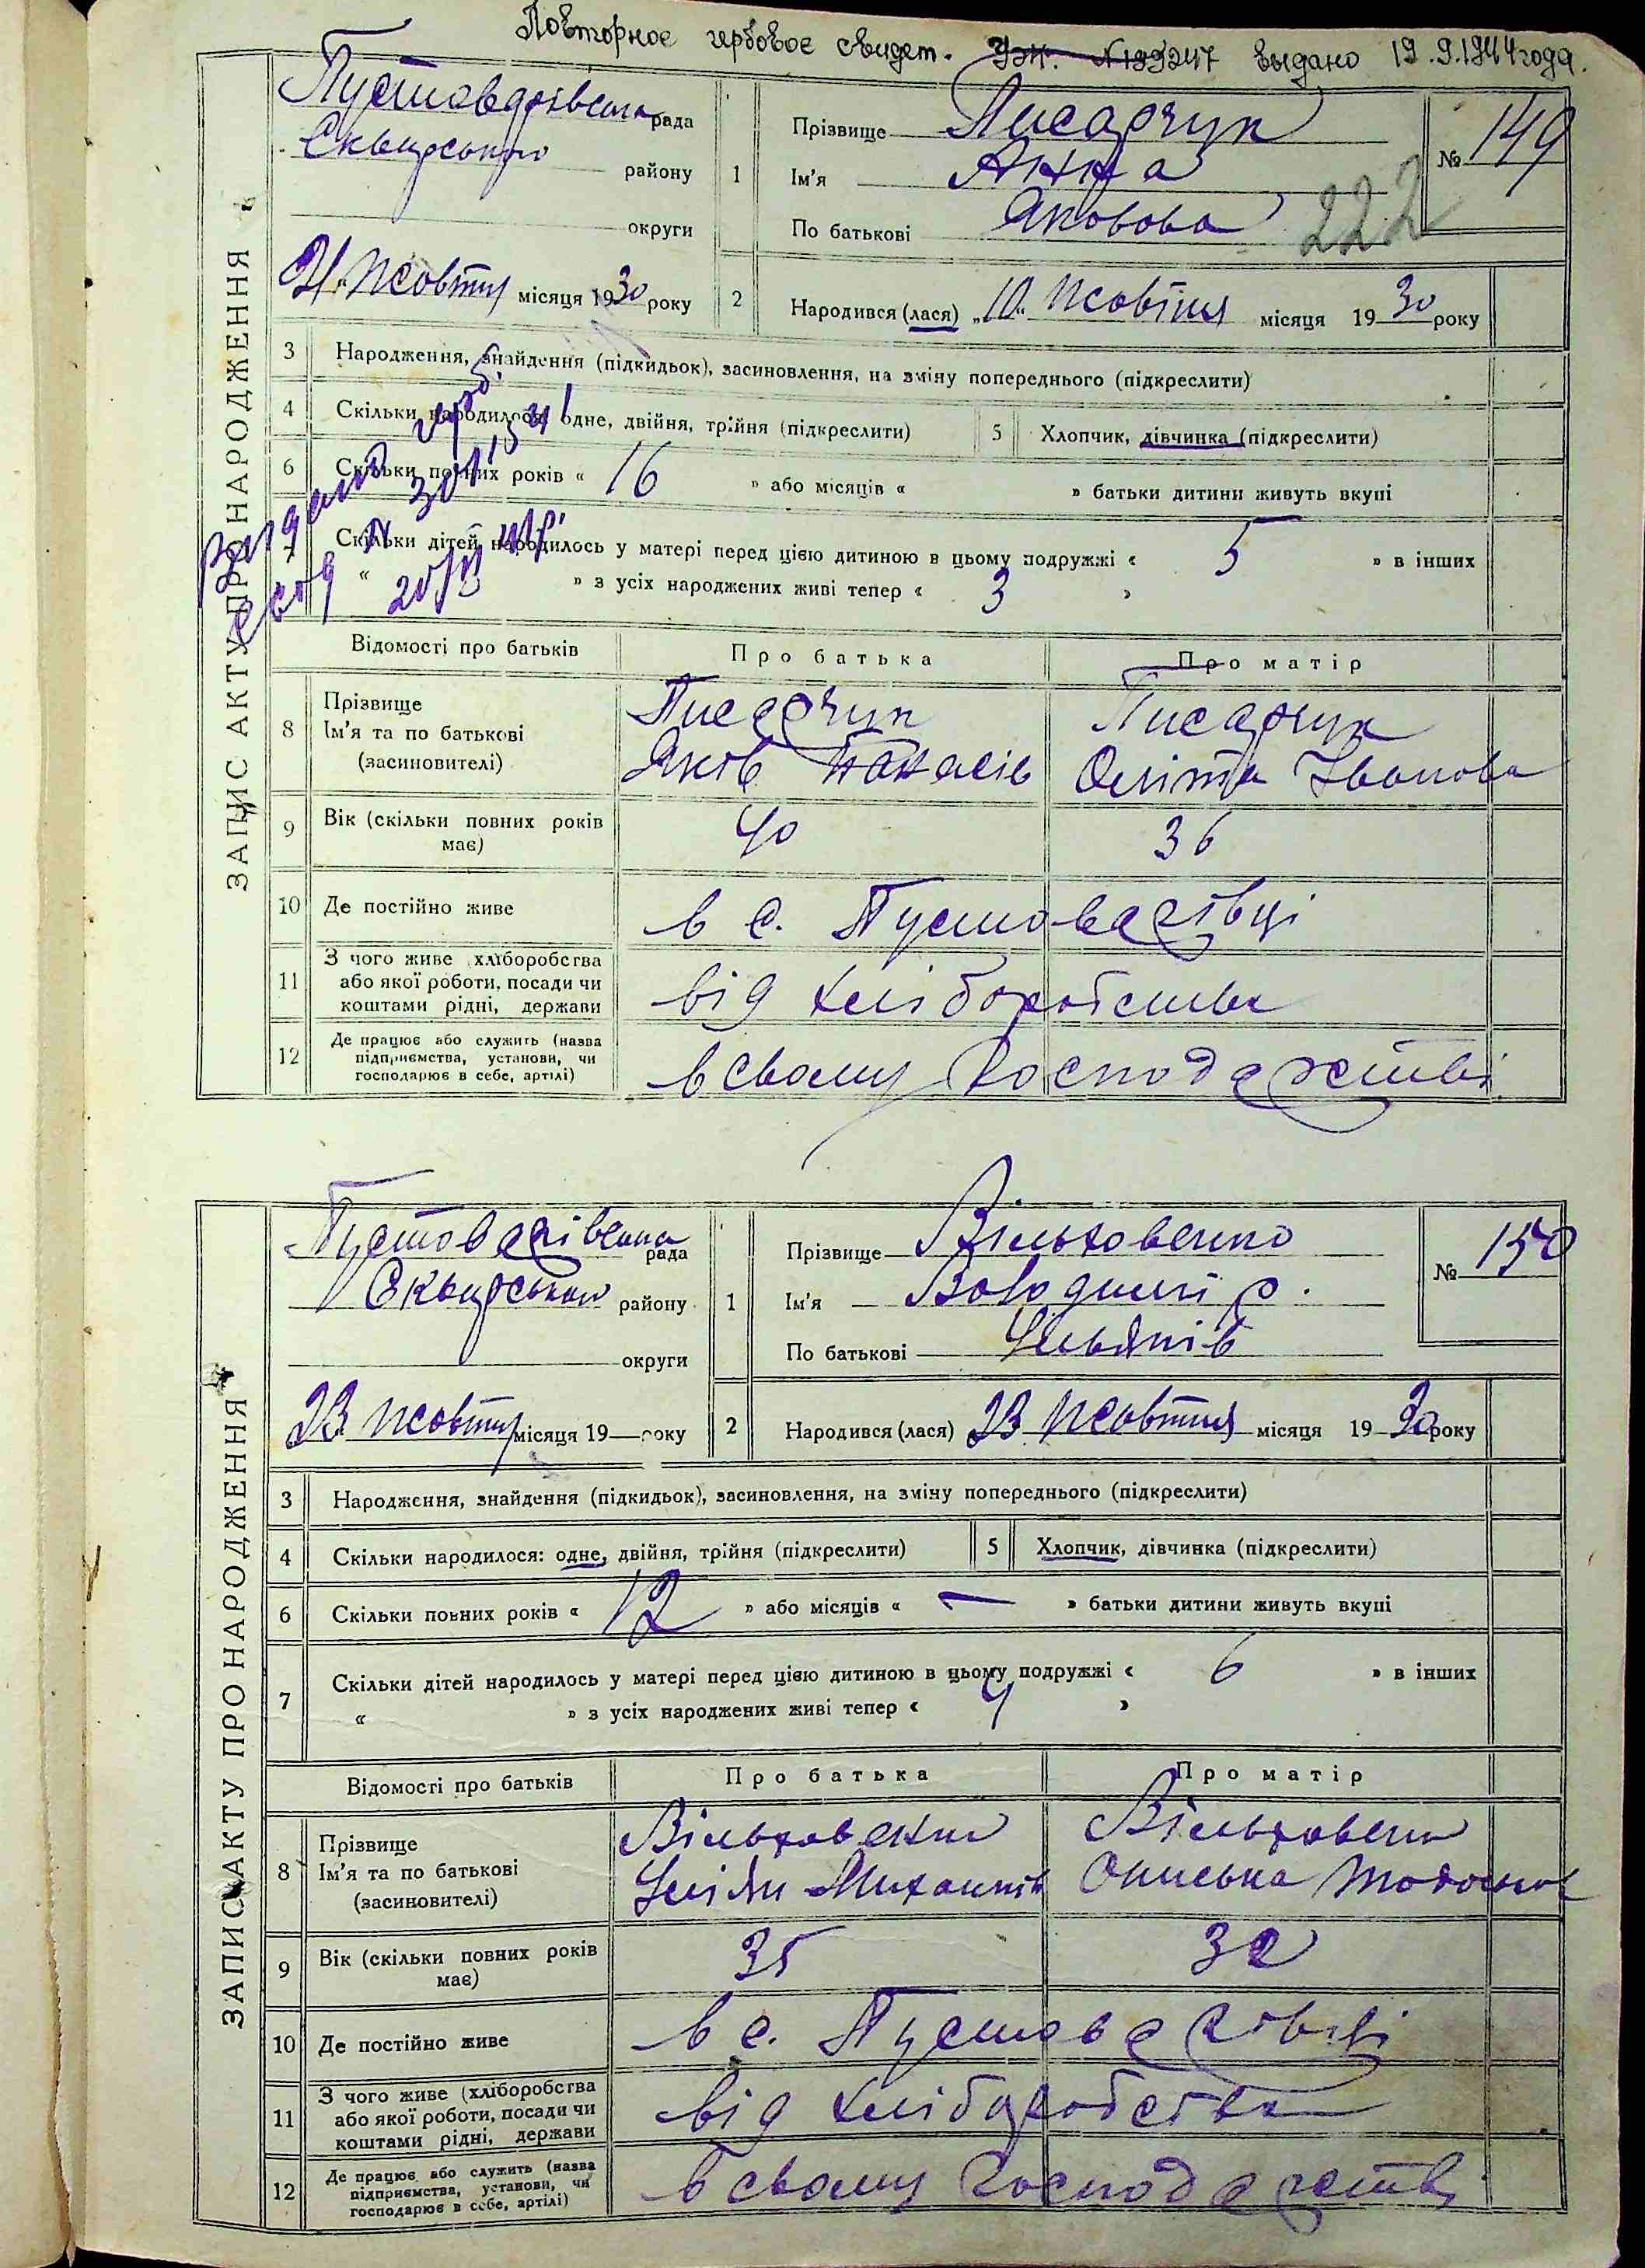 Повторное гербовое свидет. УЭЖ. №199247 выдано 19.9.1944 года.
ЗАПИС АКТУ ПРО НАРОДЖЕННЯ
Пустоварівська рада
Сквирського району
округи
21 Жовтня місяця 1930 року
1 Прізвище Писарчук
Ім'я Анна
По батькові Яковова
№ 149
222
2 Народився (лася) „10" Жовтня місяця 1930 року
3 Народження, знайдення (підкидьок), засиновлення, на зміну попереднього (підкреслити)
4 Скільки народилося: одне, двійня, трійня (підкреслити) 5 Хлопчик, дівчинка (підкреслити)
6 Скільки повних років « 16 » або місяців « » батьки дитини живуть вкупі
Скільки дітей народилось у матері перед цією дитиною в цьому подружжі « 5 » в інших
« » з усіх народжених живі тепер « 3 »
Відомості про батьків Про батька Про матір
8 Прізвище Писарчук Писарчук
Ім'я та по батькові (засиновителі) Яків Панасів Оліта Іванова
9 Вік (скільки повних років має) 40 36
10 Де постійно живе в с. Пустоварівці
11 З чого живе (хліборобства або якої роботи, посади чи коштами рідні, держави від хліборобства
12 Де працює або служить (назва підприємства, установи, чи господарює в себе, артілі) в своєму господарстві
ЗАПИС АКТУ ПРО НАРОДЖЕННЯ
Пустоварівська рада
Сквирського району
округи
23 Жовтня місяця 19— року
1 Прізвище Вільховенко
Ім'я Володимир.
По батькові Ульянів
№ 150
2 Народився (лася) 23 Жовтня місяця 1930 року
3 Народження, знайдення (підкидьок), засиновлення, на зміну попереднього (підкреслити)
4 Скільки народилося: одне, двійня, трійня (підкреслити) 5 Хлопчик, дівчинка (підкреслити)
6 Скільки повних років « 12 » або місяців « — » батьки дитини живуть вкупі
7 Скільки дітей народилось у матері перед цією дитиною в цьому подружжі « 6 » в інших
« » з усіх народжених живі тепер « 4 »
Відомості про батьків Про батька Про матір
8 Прізвище Вільховенко Вільховенко
Ім'я та по батькові (засиновителі) Уліян Михайлів Ониська
9 Вік (скільки повних років має) 35 32
10 Де постійно живе в с. Пустоварівці
11 З чого живе (хліборобства або якої роботи, посади чи коштами рідні, держави від хліборобства
12 Де працює або служить (назва підприємства, установи, чи господарює в себе, артілі) в своєму господарстві